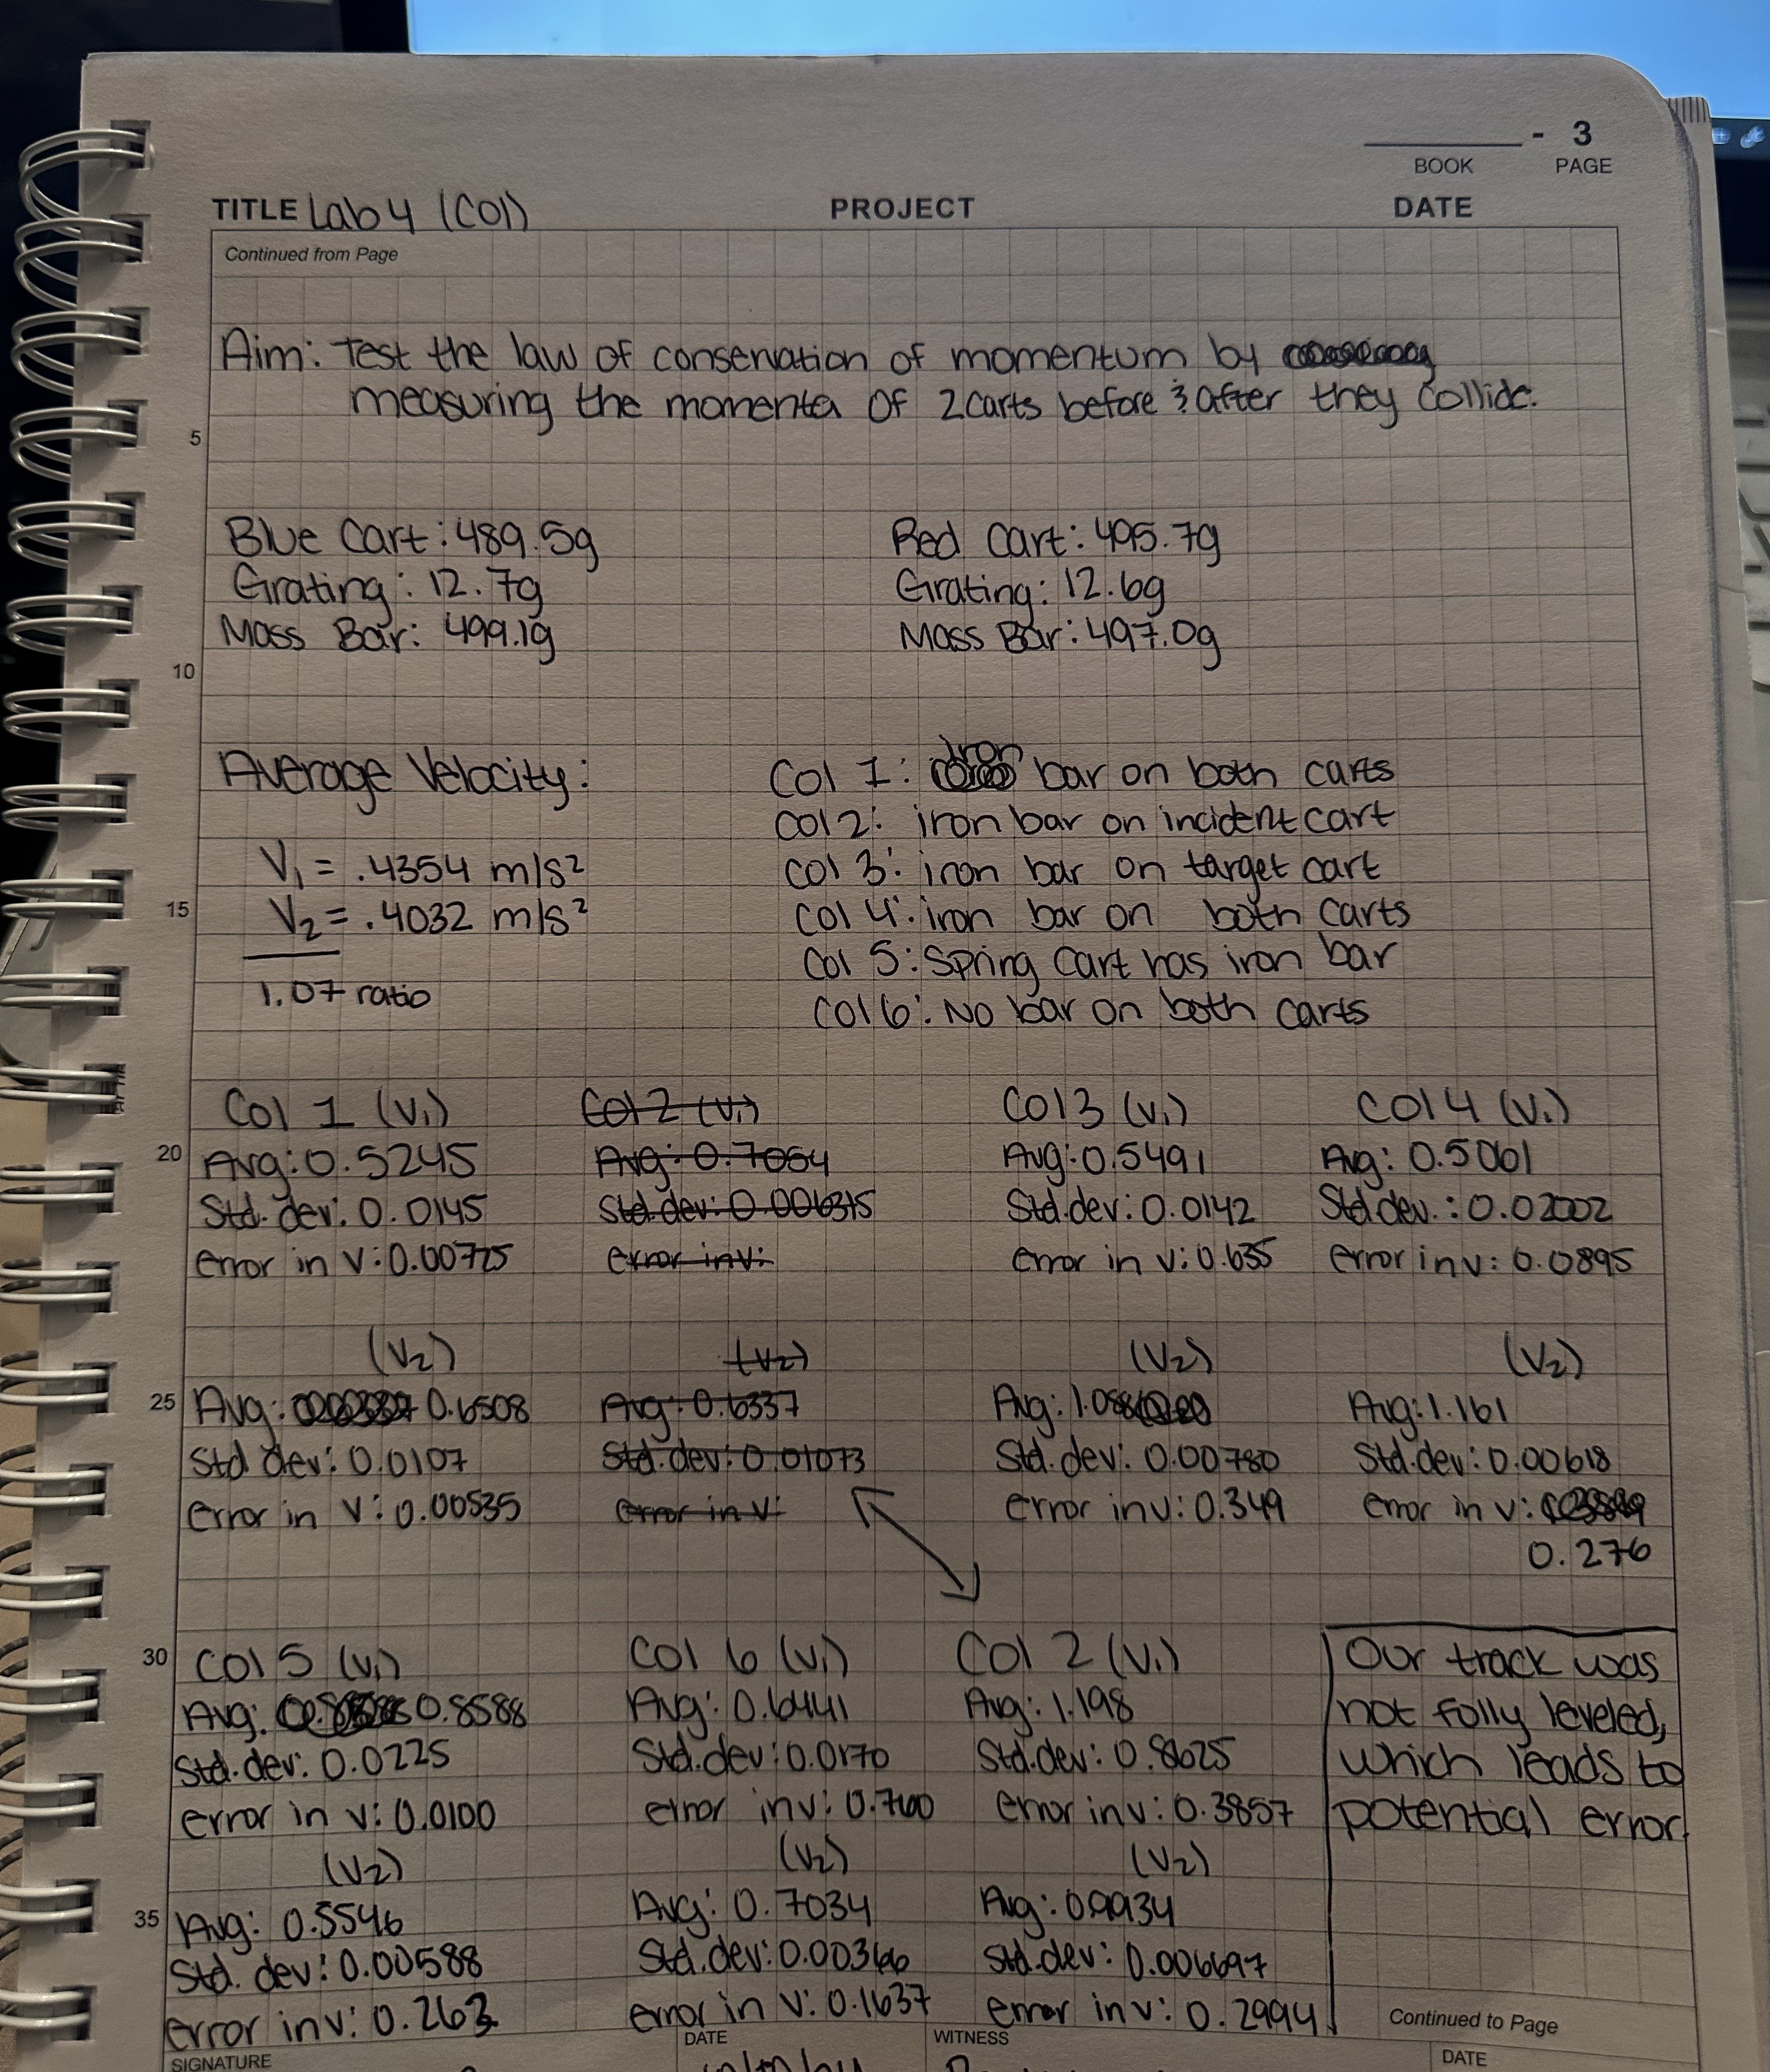 - 3
BOOK PAGE
TITLE Lab 4 (COI) PROJECT DATE
Continued from Page
Aim: Test the law of conservation of momentum by
measuring the momenta of 2 carts before & after they collide.
5
Blue Cart: 489.5g Red Cart: 495.7g
Grating: 12.7g Grating: 12.6g
Mass Bar: 499.1g Mass Bar: 497.0g
10
Average Velocity: Col 1: iron bar on both carts
Col 2: iron bar on incident cart
V₁ = .4354 m/s² Col 3: iron bar on target cart
15 V₂ = .4032 m/s² Col 4: iron bar on both carts
Col 5: Spring Cart has iron bar
1.07 ratio
Col 6: No bar on both carts
Col 1 (V₁) Col 2 (V₁) Col 3 (V₁) Col 4 (V₁)
20 Avg: 0.5245 Avg: 0.7054 Avg: 0.5491 Avg: 0.5061
Std. dev: 0.0145 Std.dev: 0.006315 Std.dev: 0.0142 Std.dev.: 0.02002
error in V: 0.00725 error in V: error in V: 0.635 error in V: 0.0895
(V₂) (V₂) (V₂) (V₂)
25 Avg: 0.6508 Avg: 0.6337 Avg: 1.088 Avg: 1.161
Std dev: 0.0107 Std.dev: 0.01073 Std.dev: 0.00780 Std.dev: 0.00618
error in V: 0.00535 error in V: error in V: 0.349 error in V:
0.276
30 Col 5 (V₁) Col 6 (V₁) Col 2 (V₁) Our track was
Avg: 0.8588 Avg: 0.6441 Avg: 1.198 not fully leveled,
Std. dev: 0.0225 Std.dev: 0.0170 Std.dev: 0.8625 which leads to
error in V: 0.0100 error in V: 0.760 error in V: 0.3857 potential error.
(V₂) (V₂) (V₂)
35 Avg: 0.5546 Avg: 0.7034 Avg: 0.9934
Std. dev: 0.00588 Std.dev: 0.00366 Std.dev: 0.006697
error in V: 0.263 error in V: 0.1637 error in V: 0.2994 Continued to Page
SIGNATURE DATE WITNESS DATE